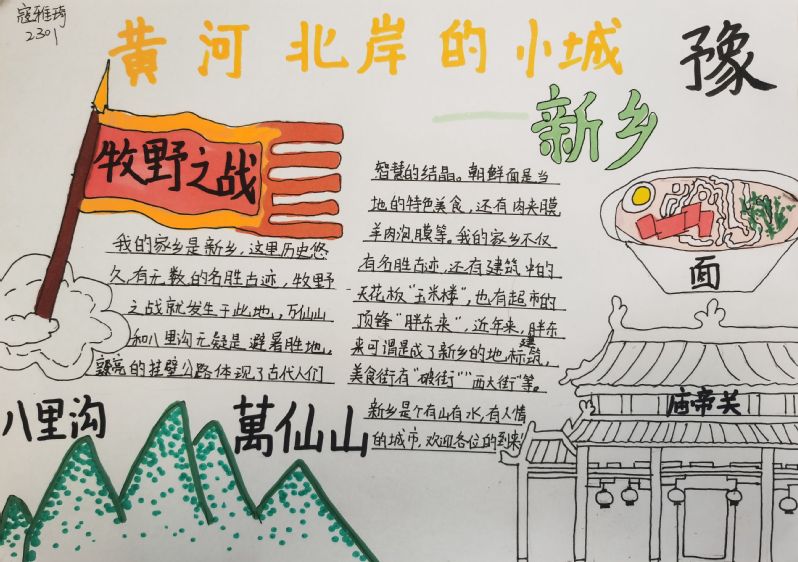 寇雅琦
2301
黄河北岸的小城
豫
新乡
牧野之战
我的家乡是新乡,这里历史悠
久,有无数的名胜古迹,牧野
之战就发生于此地,万仙山
和八里沟无疑是避暑胜地,
的挂壁公路体现了古代人们
智慧的结晶。朝鲜面是当
地的特色美食,还有肉夹膜
羊肉泡膜等。我的家乡不仅
有名胜古迹,还有建筑中的
天花板"玉米楼",也有超市的
顶锋"胖东来",近年来,胖东
来可谓是成了新乡的地标建筑,
美食街有"破街""西大街"等。
新乡是个有山有水,有人情
的城市,欢迎各位的到来!
面
庙帝关
八里沟
萬仙山